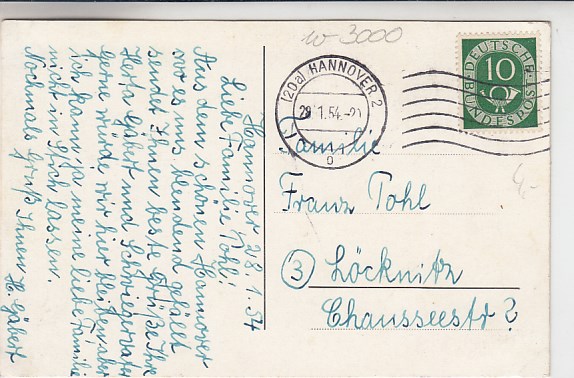 Hannover 28.1.54
Liebe Familie Pohl!
Aus dem schönen Hannover
wo es uns blendend gefällt
sendet Ihnen beste Grüße Ihre
Herta Gäbert und Schwiegervater
Gerne würde wir hier bleiben aber
ich kann ja meine liebe Familie
nicht in Stich lassen.
Nochmals Gruß Ihnen H. Gäbert
w-3000
(20a) HANNOVER 2
29.1.54.-20
g
DEUTSCHE
BUNDESPOST
10
4,-
Familie
Franz Pohl
(3) Löcknitz
Chausseestr 2